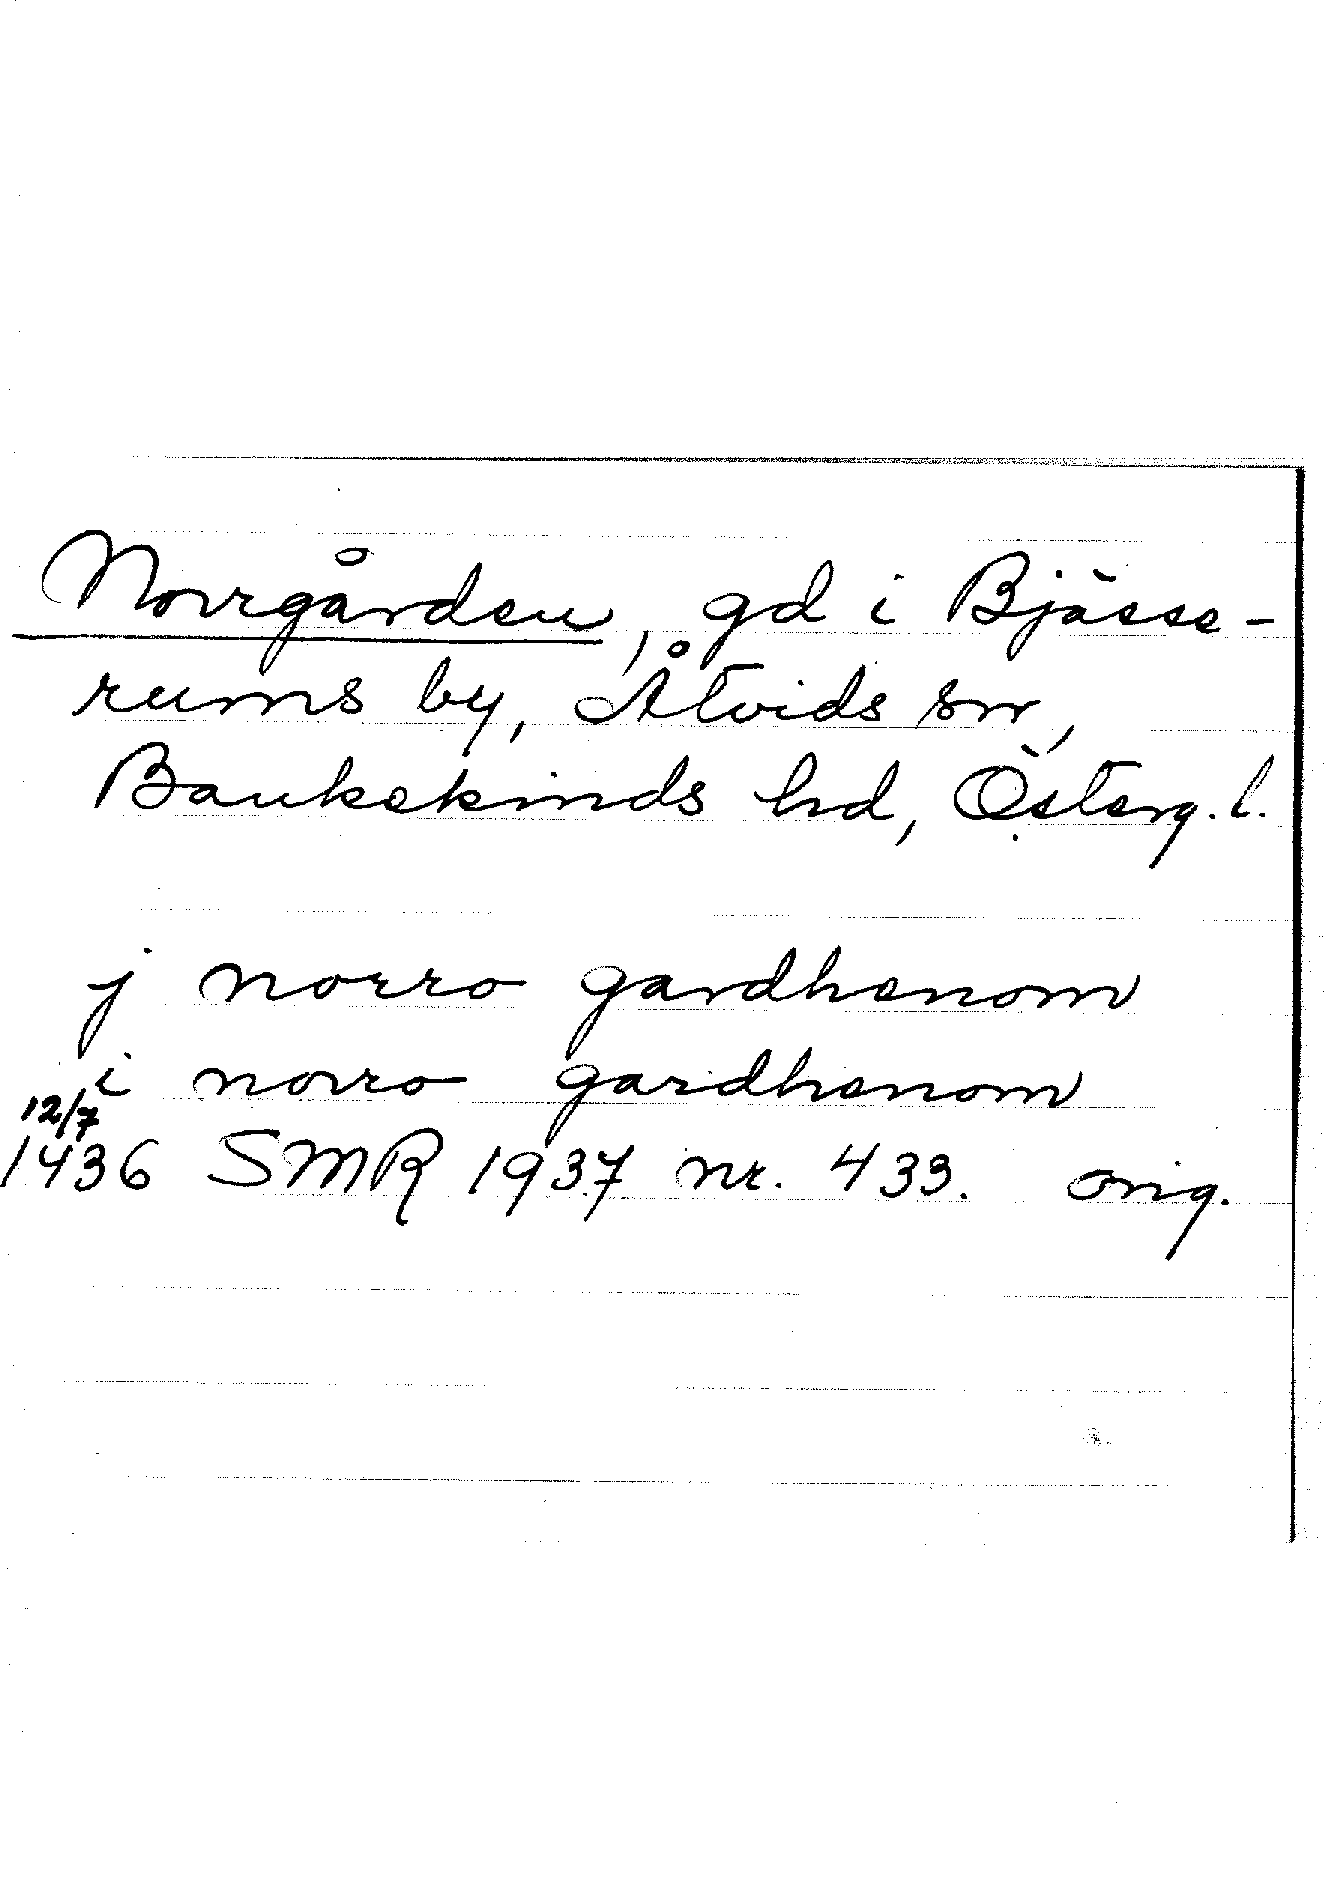 Norrgården, gd i Bjässe-
rums by, Åtvids sn,
Bankekinds hd, Österg. l.
j norro gardhenom
i norro gardhenom
12/7
1436 SMR 1937 nr. 433. orig.